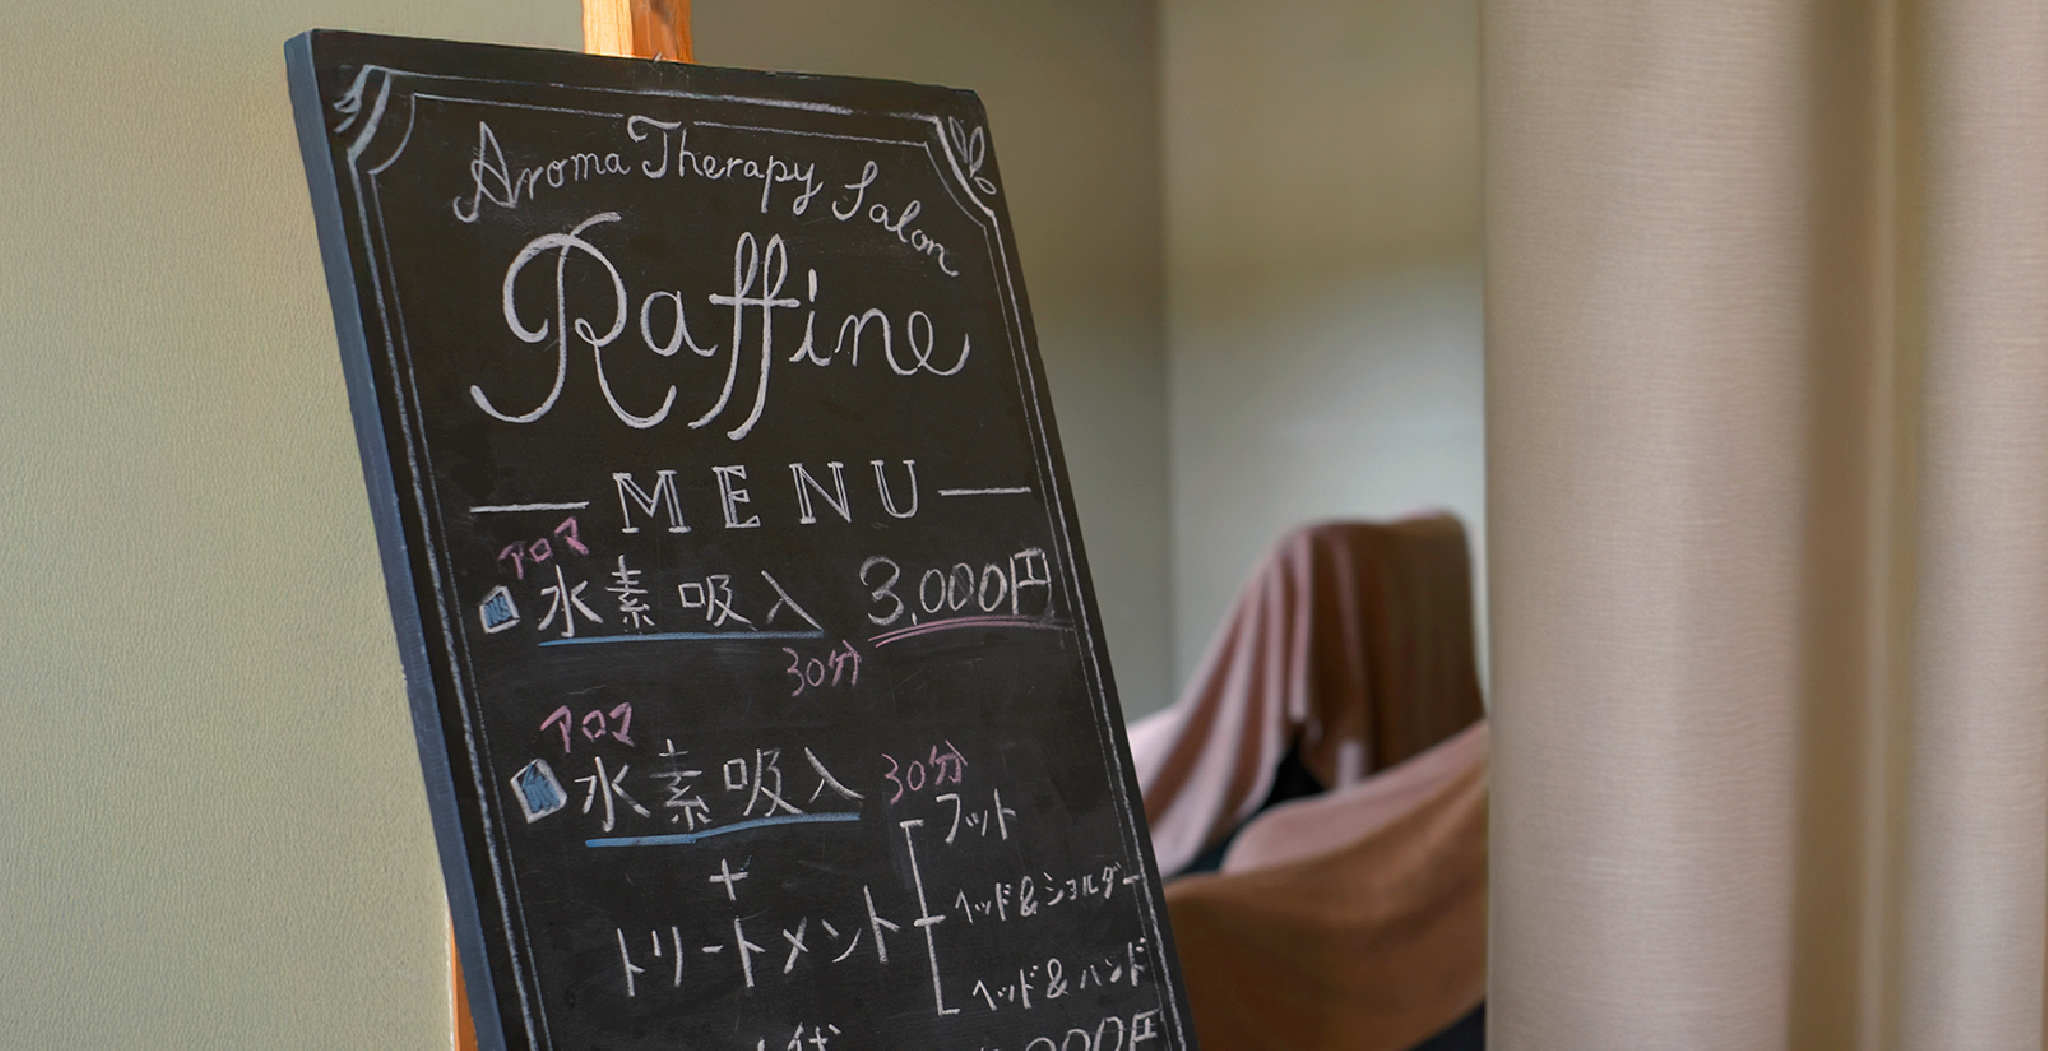 Aroma Therapy Salon
Raffine
MENU
アロマ
水素吸入 3,000円
30分
アロマ
水素吸入 30分
フット
+
トリートメント
ヘッド&ショルダー
ヘッド&ハンド
000円